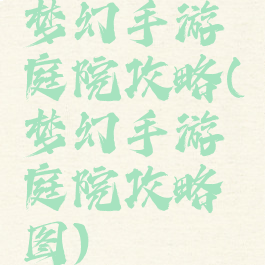 梦幻手游
庭院攻略(
梦幻手游
庭院攻略
图)